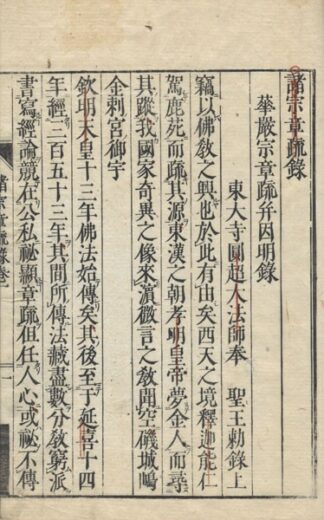 諸宗章疏錄
華嚴宗章疏并因明錄
東大寺圓超大法師奉　聖王勅錄上
竊以佛教之興也於此有由矣西天之境釋迦能仁
駕鹿苑而疏其源東漢之朝孝明皇帝夢金人而尋
其蹤我國家奇異之像來濱微言之敎聞空磯城嶋
金剌宮御宇
欽明天皇十三年佛法始傳矣其後至于延喜十四
年經三百五十三年其間所傳法藏盡數分敎窮派
書寫經論競在公私祕顯章疏但任人心或祕不傳
諸宗章疏錄卷一